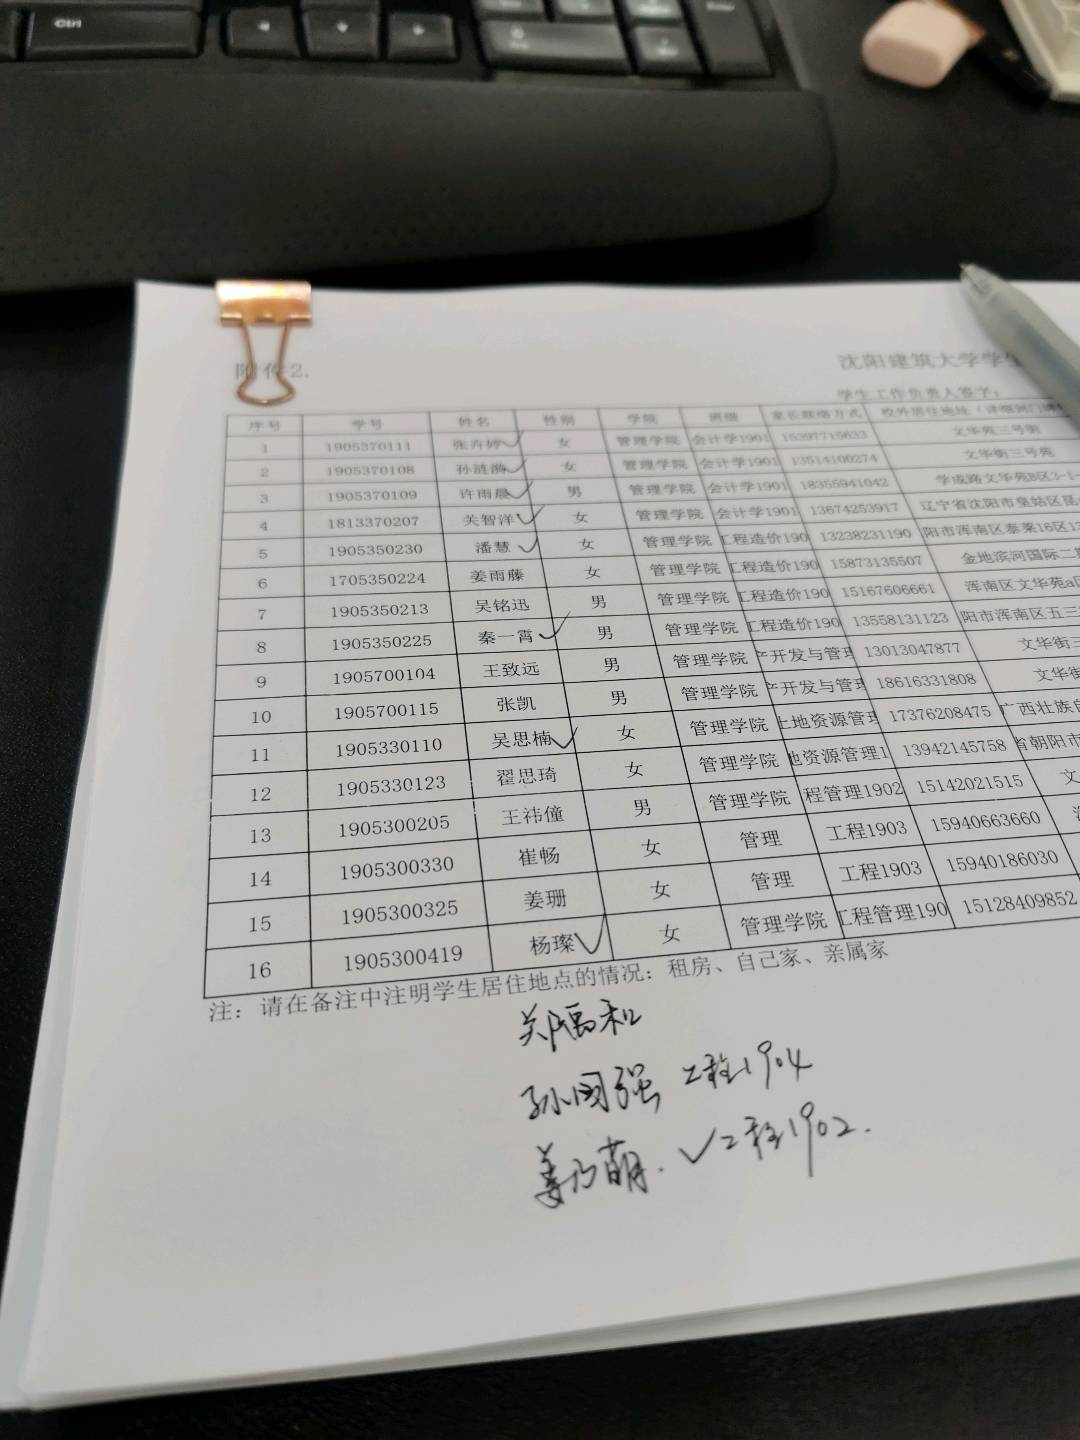 Ctrl
附件2.
沈阳建筑大学学生
学生工作负责人签字：
序号 学号 姓名 性别 学院 班级 家长联络方式 校外居住地址（详细到门牌
1 1905370111 张卉婷 女 管理学院 会计学1901 15397715633 文华苑三号街
2 1905370108 孙涟漪 女 管理学院 会计学1901 13514100274 文华街三号苑
3 1905370109 许雨晨 男 管理学院 会计学1901 18355941042 学成路文华苑B区3-1-
4 1813370207 关智洋 女 管理学院 会计学1901 13674253917 辽宁省沈阳市皇姑区昆
5 1905350230 潘慧 女 管理学院 工程造价190 13238231190 阳市浑南区泰莱16区12
6 1705350224 姜雨藤 女 管理学院 工程造价190 15873135507 金地滨河国际二期
7 1905350213 吴铭迅 男 管理学院 工程造价190 15167606661 浑南区文华苑a区
8 1905350225 秦一霄 男 管理学院 工程造价190 13558131123 阳市浑南区五三
9 1905700104 王致远 男 管理学院 产开发与管理 13013047877 文华街三
10 1905700115 张凯 男 管理学院 产开发与管理 18616331808 文华街
11 1905330110 吴思楠 女 管理学院 土地资源管理 17376208475 广西壮族自
12 1905330123 翟思琦 女 管理学院 地资源管理1 13942145758 省朝阳市
13 1905300205 王祎僮 男 管理学院 程管理1902 15142021515 文
14 1905300330 崔畅 女 管理 工程1903 15940663660
15 1905300325 姜珊 女 管理 工程1903 15940186030
16 1905300419 杨璨 女 管理学院 工程管理190 15128409852
注：请在备注中注明学生居住地点的情况：租房、自己家、亲属家
关禹和
孙国强 工程1904
姜乃萌. ✓工程1902.